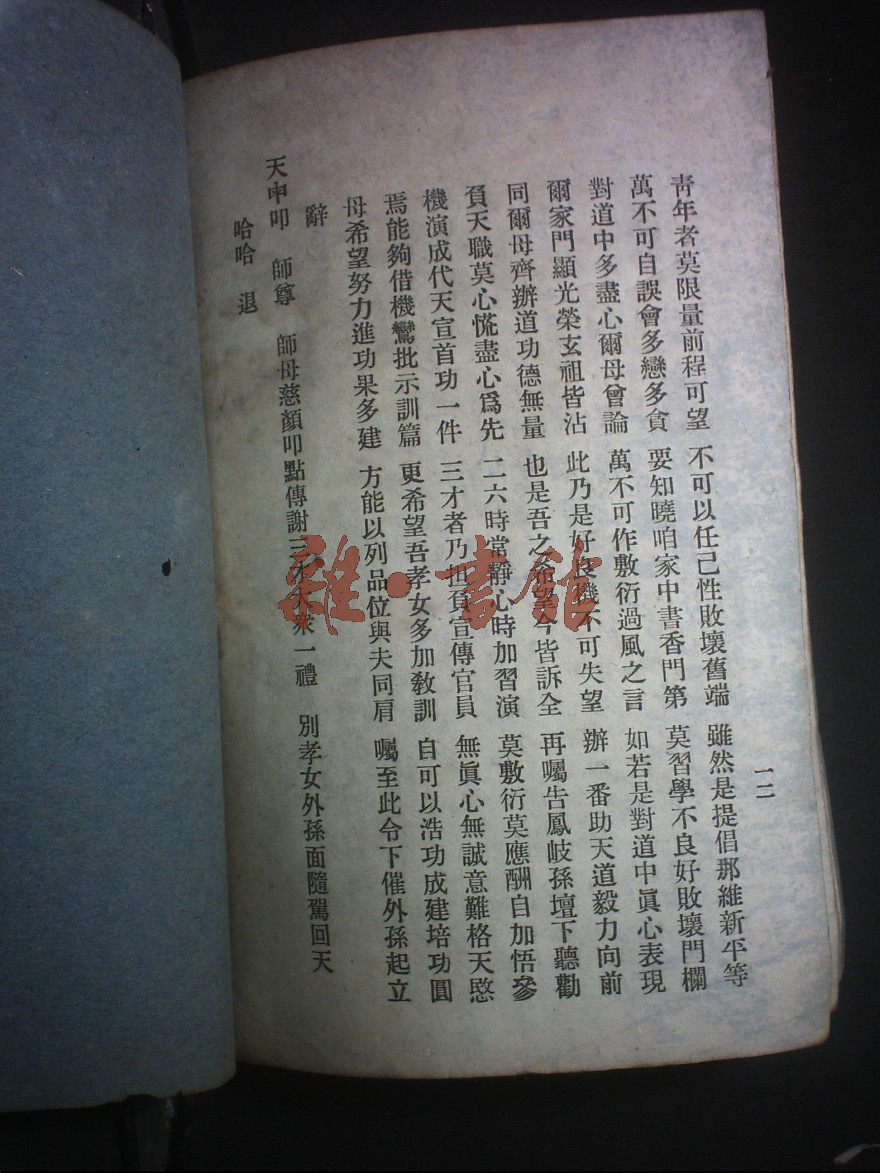 一二
青年者莫限量前程可望　不可以任己性敗壞舊端　雖然是提倡那維新平等
萬不可自誤會多戀多貪　要知曉咱家中書香門第　莫習學不良好敗壞門欄
對道中多盡心爾母曾論　萬不可作敷衍過風之言　如若是對道中眞心表現
爾家門顯光榮玄祖皆沾　此乃是好良機不可失望　辦一番助天道毅力向前
同爾母齊辦道功德無量　也是吾之希望今皆訴全　再囑告鳳岐孫壇下聽勸
負天職莫心慌盡心爲先　二六時常靜心時加習演　莫敷衍莫應酬自加悟參
機演成代天宣首功一件　三才者乃担負宣傳官員　無眞心無誠意難格天愍
焉能夠借機鸞批示訓篇　更希望吾孝女多加敎訓　自可以浩功成建培功圓
母希望努力進功果多建　方能以列品位與夫同肩　囑至此令下催外孫起立
辭
天中叩　師尊　師母慈顏叩點傳謝三才大衆一禮　別孝女外孫面隨駕回天
哈哈　退
雜·書館